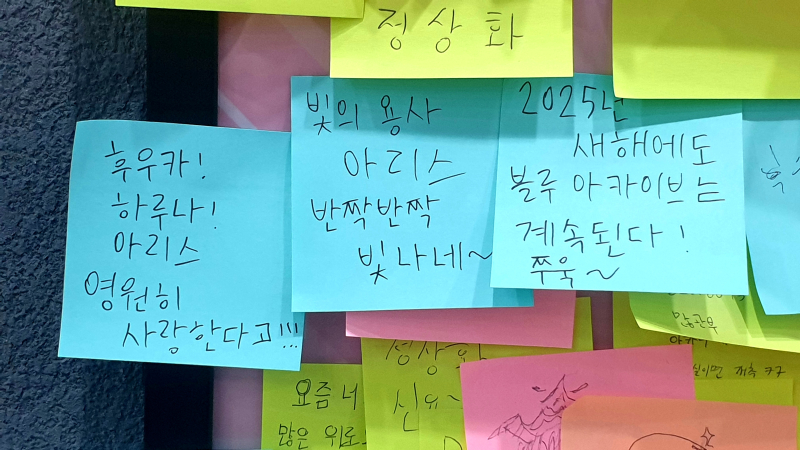 정상화
후우카!
하루나!
아리스
영원히
사랑한다고!!!
빛의 용사
아리스
반짝반짝
빛나네~
2025년
새해에도
블루 아카이브는
계속된다!
쭈욱~
정상화
신유~
요즘 너
많은 위로